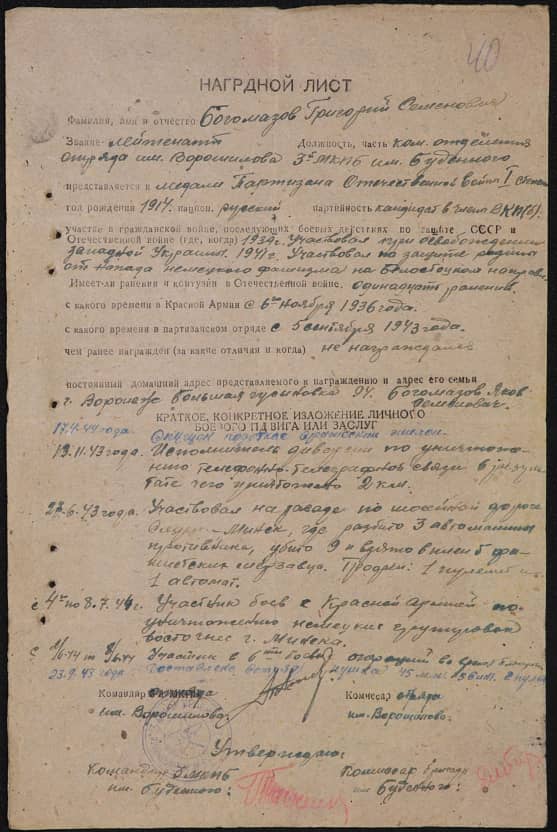 40
НАГРДНОЙ ЛИСТ
Фамилия, имя и отчество Богомазов Григорий Семенович
Звание лейтенант Должность, часть ком. отделения
отряда им. Ворошилова 3й МКПБ им. Буденного
представляется к медали Партизана Отечественной войны I степени
год рождения 1917. национ. русский партийность кандидат в члены ВКП(б).
участие в гражданской войне, последующих боевых действиях по защите СССР и
Отечественной войне (где, когда) 1939г. Участвовал при освобождении
западной Украины. 1941г. Участвовал по защите родины
от немецкого фашизма на Белостоцком направ.
Имеет ли ранения и контузии в Отечественной войне, одинадцать ранений.
с какого времени в Красной Армии с 6го ноября 1936 года.
с какого времени в партизанском отряде с 5 сентября 1943 года.
чем ранее награжден (за какие отличия и когда) не награждался
постоянный домашний адрес представляемого к награждению и адрес его семьи
г. Воронеж 94. Богомазов Яков
Семенович.
КРАТКОЕ, КОНКРЕТНОЕ ИЗЛОЖЕНИЕ ЛИЧНОГО
БОЕВОГО ПДВИГА ИЛИ ЗАСЛУГ
17.4.44 года.
19.11.43 года. Исполнитель диверсии по уничтоже-
нию телефонно-телеграфной связи в резуль-
тате чего уничтожено 2 км.
6.43 года. Участвовал на засаде по шоссейной дороге
Минск, где разбито 3 автомашины
противника, убито 9 и взято в плен 5 фа-
шистских Трофеи: 1 пулемет и
1 автомат.
с 4го по 8.7.44г. Участник боев с Красной армией по
уничтожению немецкие группировки
восточнее г. Минска.
Участник в 6ти боевых операций во время
23.9.43 года пушка 45 м.м.
Командир
им. Ворошилова:
Комиссар отряда
им. Ворошилова:
Утверждаю:
Командир 3 МКПБ
им. Буденного:
Комиссар бригады
им Буденного: